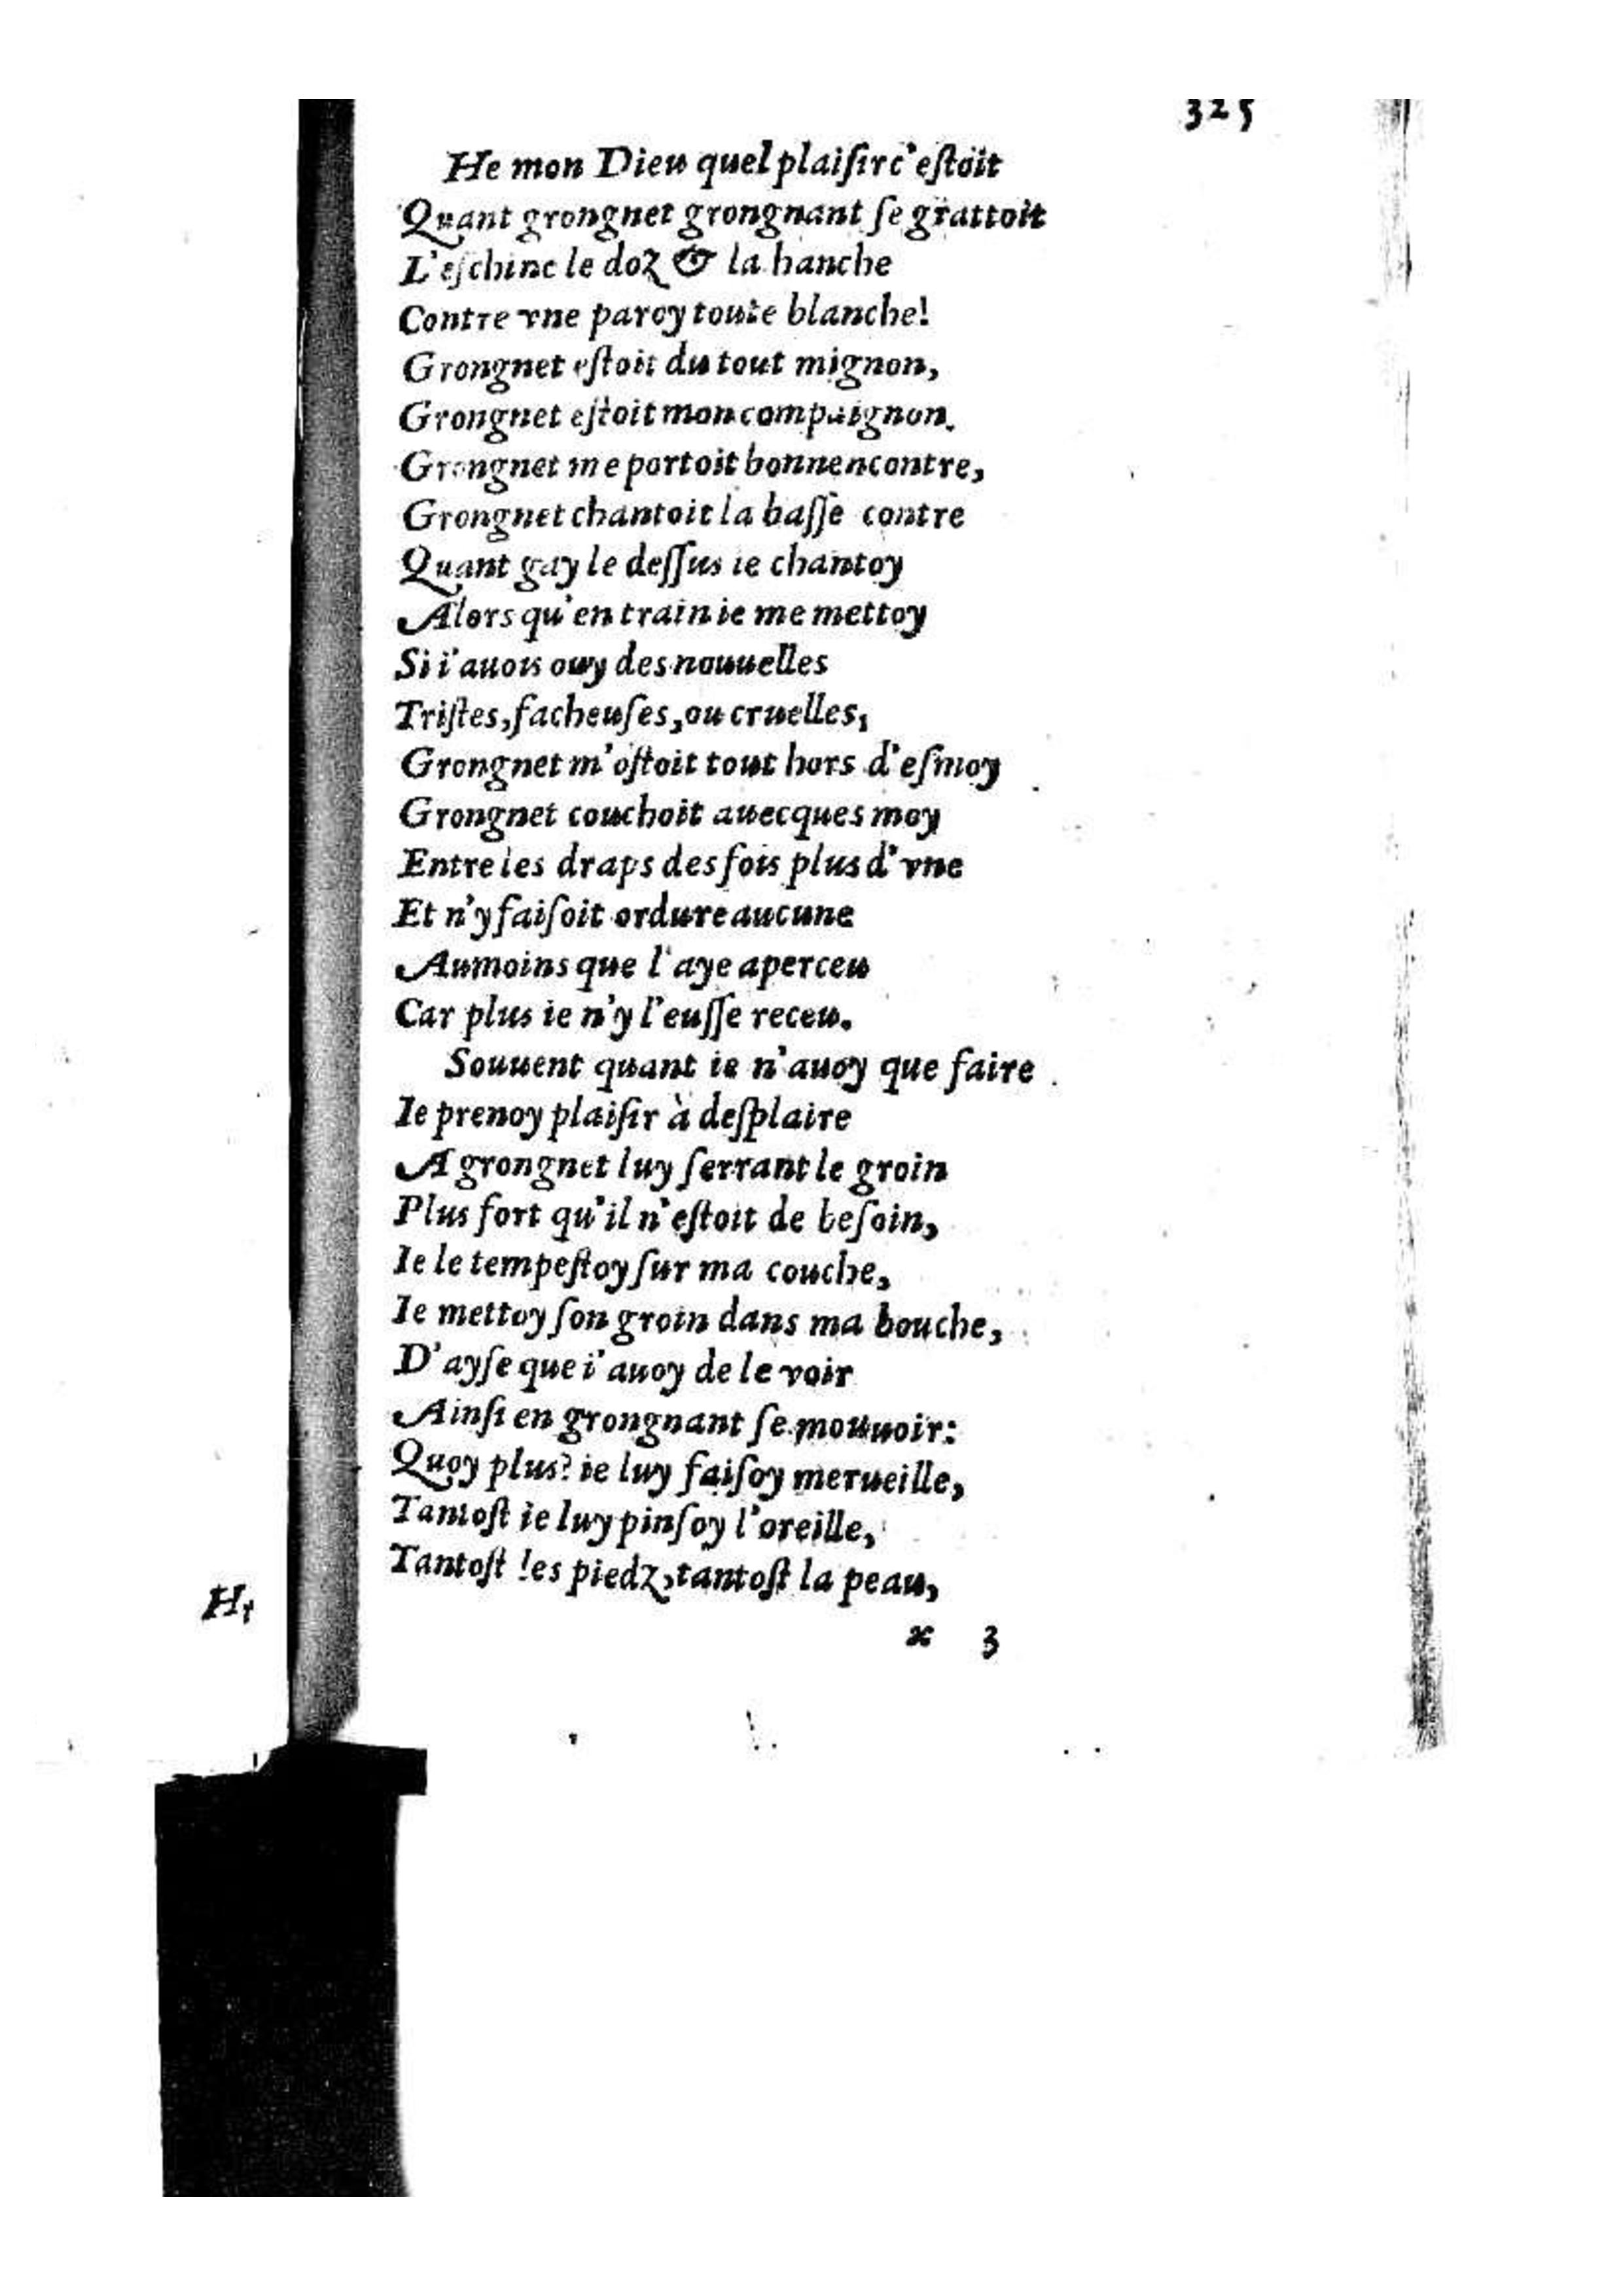 325
He mon Dieu quel plaiſir c'eſtoit
Quant grongnet grongnant ſe grattoit
L'eſchine le doz & la hanche
Contre vne paroy toute blanche!
Grongnet eſtoit du tout mignon,
Grongnet eſtoit mon compaignon.
Grongnet me portoit bonnencontre,
Grongnet chantoit la baſſe contre
Quant gay le deſſus ie chantoy
Alors qu'en train ie me mettoy
Si i'auois ouy des nouuelles
Triſtes, facheuſes, ou cruelles,
Grongnet m'oſtoit tout hors d'eſmoy
Grongnet couchoit auecques moy
Entre les draps des fois plus d'vne
Et n'y faiſoit ordure aucune
Aumoins que l'aye aperceu
Car plus ie n'y l'euſſe receu.
Souuent quant ie n'auoy que faire
Ie prenoy plaiſir à deſplaire
A grongnet luy ſerrant le groin
Plus fort qu'il n'eſtoit de beſoin,
Ie le tempeſtoy ſur ma couche,
Ie mettoy ſon groin dans ma bouche,
D'ayſe que i'auoy de le voir
Ainſi en grongnant ſe mouuoir:
Quoy plus? ie luy faiſoy merueille,
Tantoſt ie luy pinſoy l'oreille,
Tantoſt les piedz, tantoſt la peau,
3